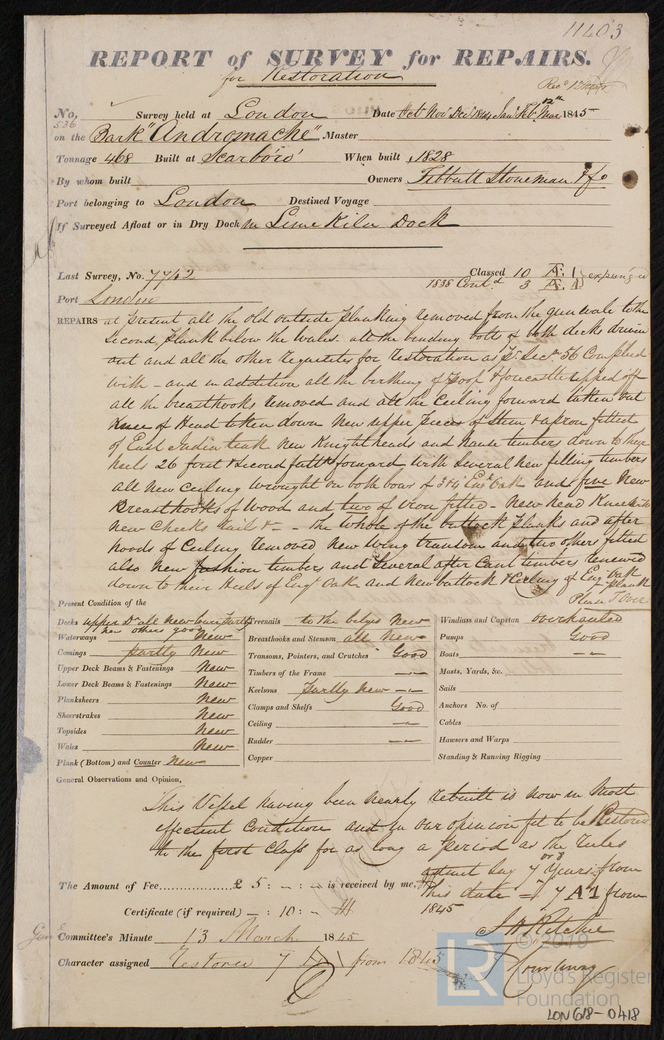 11403
REPORT of SURVEY for REPAIRS.
for Restoration
No. 536 Survey held at London Date Oct Nov Dec 1844 Jan Feb 12th Mar 1845
on the Bark "Andromache" Master
Tonnage 468 Built at Scarboro' When built 1828
By whom built Owners Tebbutt Stoneman & Co
Port belonging to London Destined Voyage
If Surveyed Afloat or in Dry Dock in Lime Kiln Dock
Last Survey, No. 7742 Classed 10 A. 1 expunged
Port London 1838 Contd 3 A. 1
REPAIRS at present all the old outside planking removed from the gunwale to the
second plank below the wales. all the binding bolts of both decks driven
out and all the other requisites for restoration as pr Sect 56 Complied
with - and in addition all the birthing of Poop & forecastle ripped off
all the breasthooks removed and all the Ceiling forward taken out
Knee of Head taken down New upper pieces of stem & apron fitted
of East India teak New Knightheads and hawse timbers down to their
heels 26 foret & second futtks forward with several new filling timbers
all new Ceiling wrought on both bows of 3¼ Eng Oak and five New
Breasthooks of Wood and two of iron fitted - New head Knee with
new Cheeks rails &c - the whole of the buttock planks and after
hoods of Ceiling removed new wing transom and two others fitted
also new fashion timbers and several after Cant timbers renewed
down to their Heels of Engh Oak and New buttock & Ceiling of Eng Oak
plank
Please Over
Present Condition of the
Decks upper Dk all new lower partly
new others good
Waterways New
Comings partly New
Upper Deck Beams & Fastenings New
Lower Deck Beams & Fastenings New
Planksheers New
Sheerstrakes New
Topsides New
Wales New
Plank (Bottom) and Counter New
Treenails to the bilges New
Breasthooks and Stemson all New
Transoms, Pointers, and Crutches Good
Timbers of the Frame —
Keelsons Partly new —
Clamps and Shelfs Good
Ceiling —
Rudder —
Copper
Windlass and Capstan overhauled
Pumps Good
Boats —
Masts, Yards, &c.
Sails
Anchors No. of
Cables
Hawsers and Warps
Standing & Running Rigging
General Observations and Opinion,
This Vessel having been nearly rebuilt is now in most
efficient Condition and in our opinion fit to be Restored
to the first Class for as long a period as the Rules
admit say 7 Years from
The Amount of Fee £ 5 : - : - is received by me, this date - or 7 A1 from
Certificate (if required) - : 10 : - 1845
J H Ritchie
Committee's Minute 13 March 1845
Character assigned Restored 7 A 1 from 1845
Courtenay
© 2019
LR
Lloyd's Register
Foundation
LON618-0418